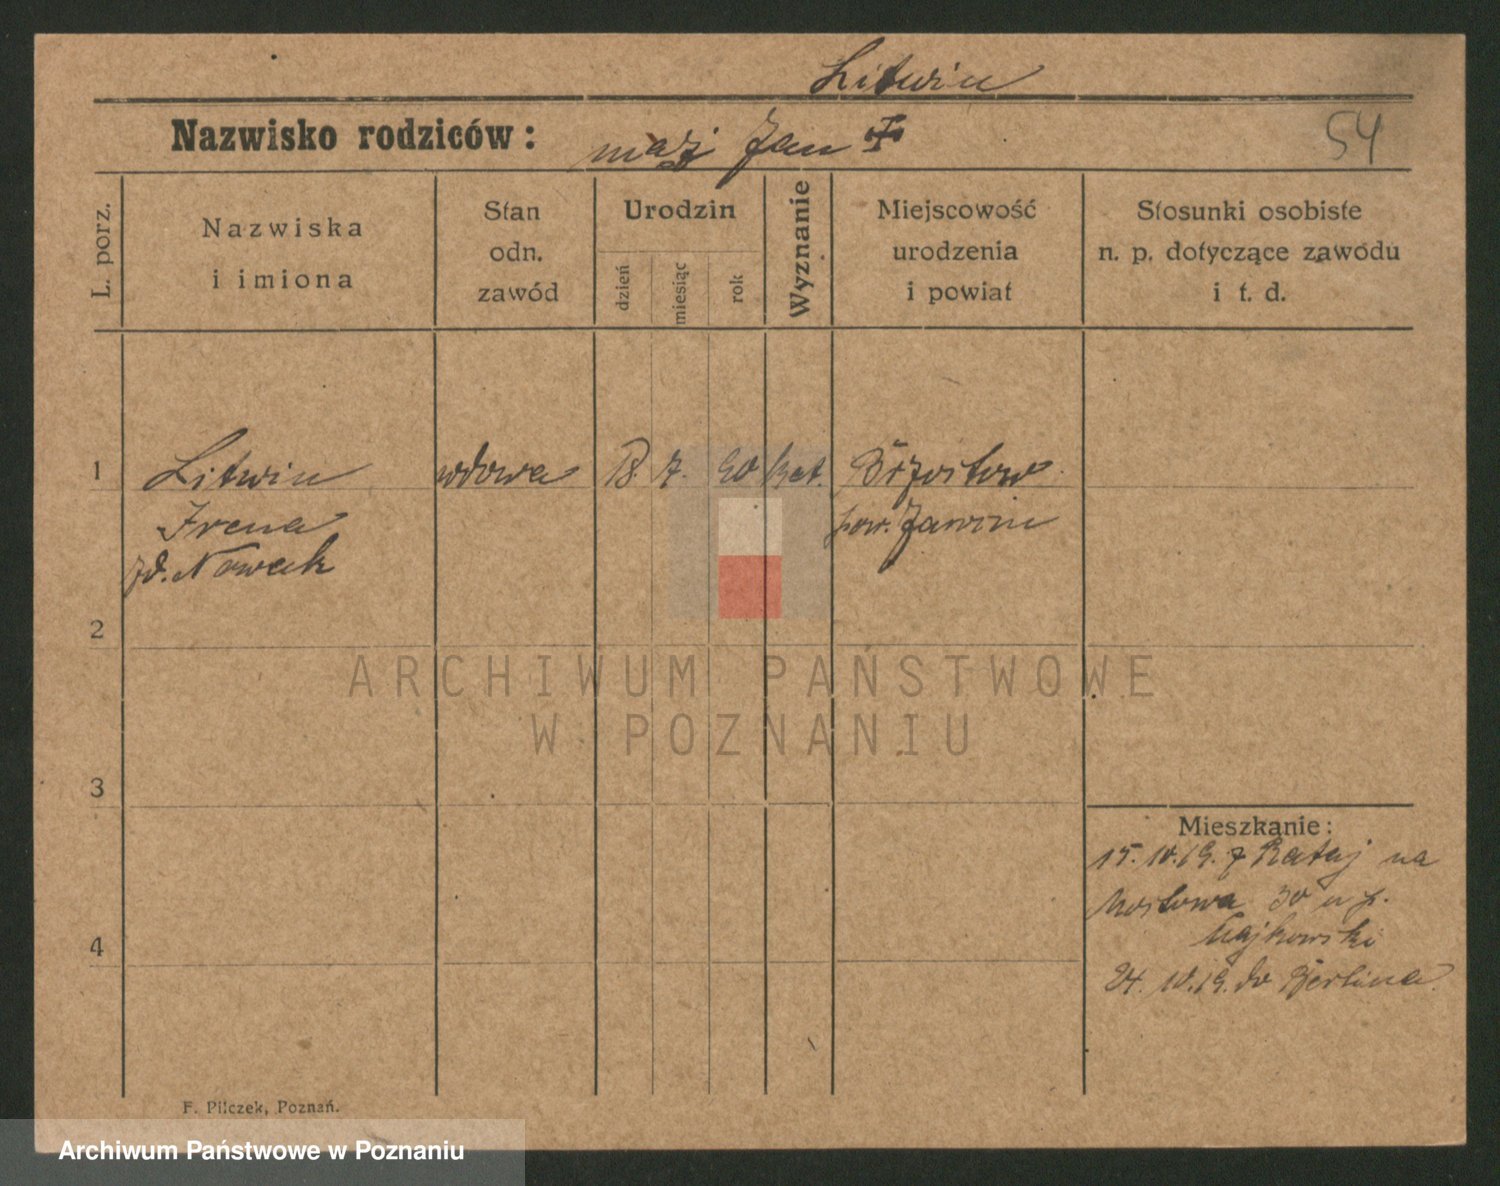 Litwin
Nazwisko rodziców: mąż Jan †
54
L. porz.
Nazwiska
i imiona
Stan
odn.
zawód
Urodzin
dzień
miesiąc
rok
Wyznanie
Miejscowość
urodzenia
i powiat
Stosunki osobiste
n. p. dotyczące zawodu
i t. d.
1 Litwin wdowa 7. 90 kat.
Irena pow.
zd. Nowak
2
ARCHIWUM PAŃSTWOWE
W POZNANIU
3
4
Mieszkanie:
15.10.19. z Rataj na
Mostowa 30 u p.
Majkowski
24.10.19. do Berlina.
F. Pilczek, Poznań.
Archiwum Państwowe w Poznaniu